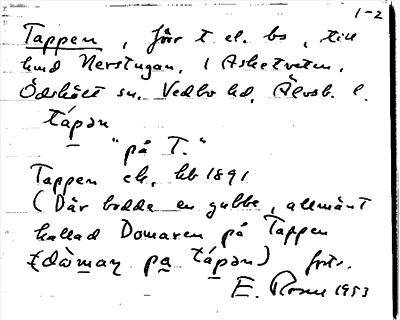 1-2
Tappen, förr t. el. bs, till
hmd Nerstugan, i Asketveten,
Ödskölt sn. Vedbo hd, Älvsb. l.
tápən
"på T."
Tappen ek. kb 1891
(Där bodde en gubbe, allmänt
kallad Domaren på Tappen
(dòmaɳ pa tápən) forts.
E. Rosen 1953